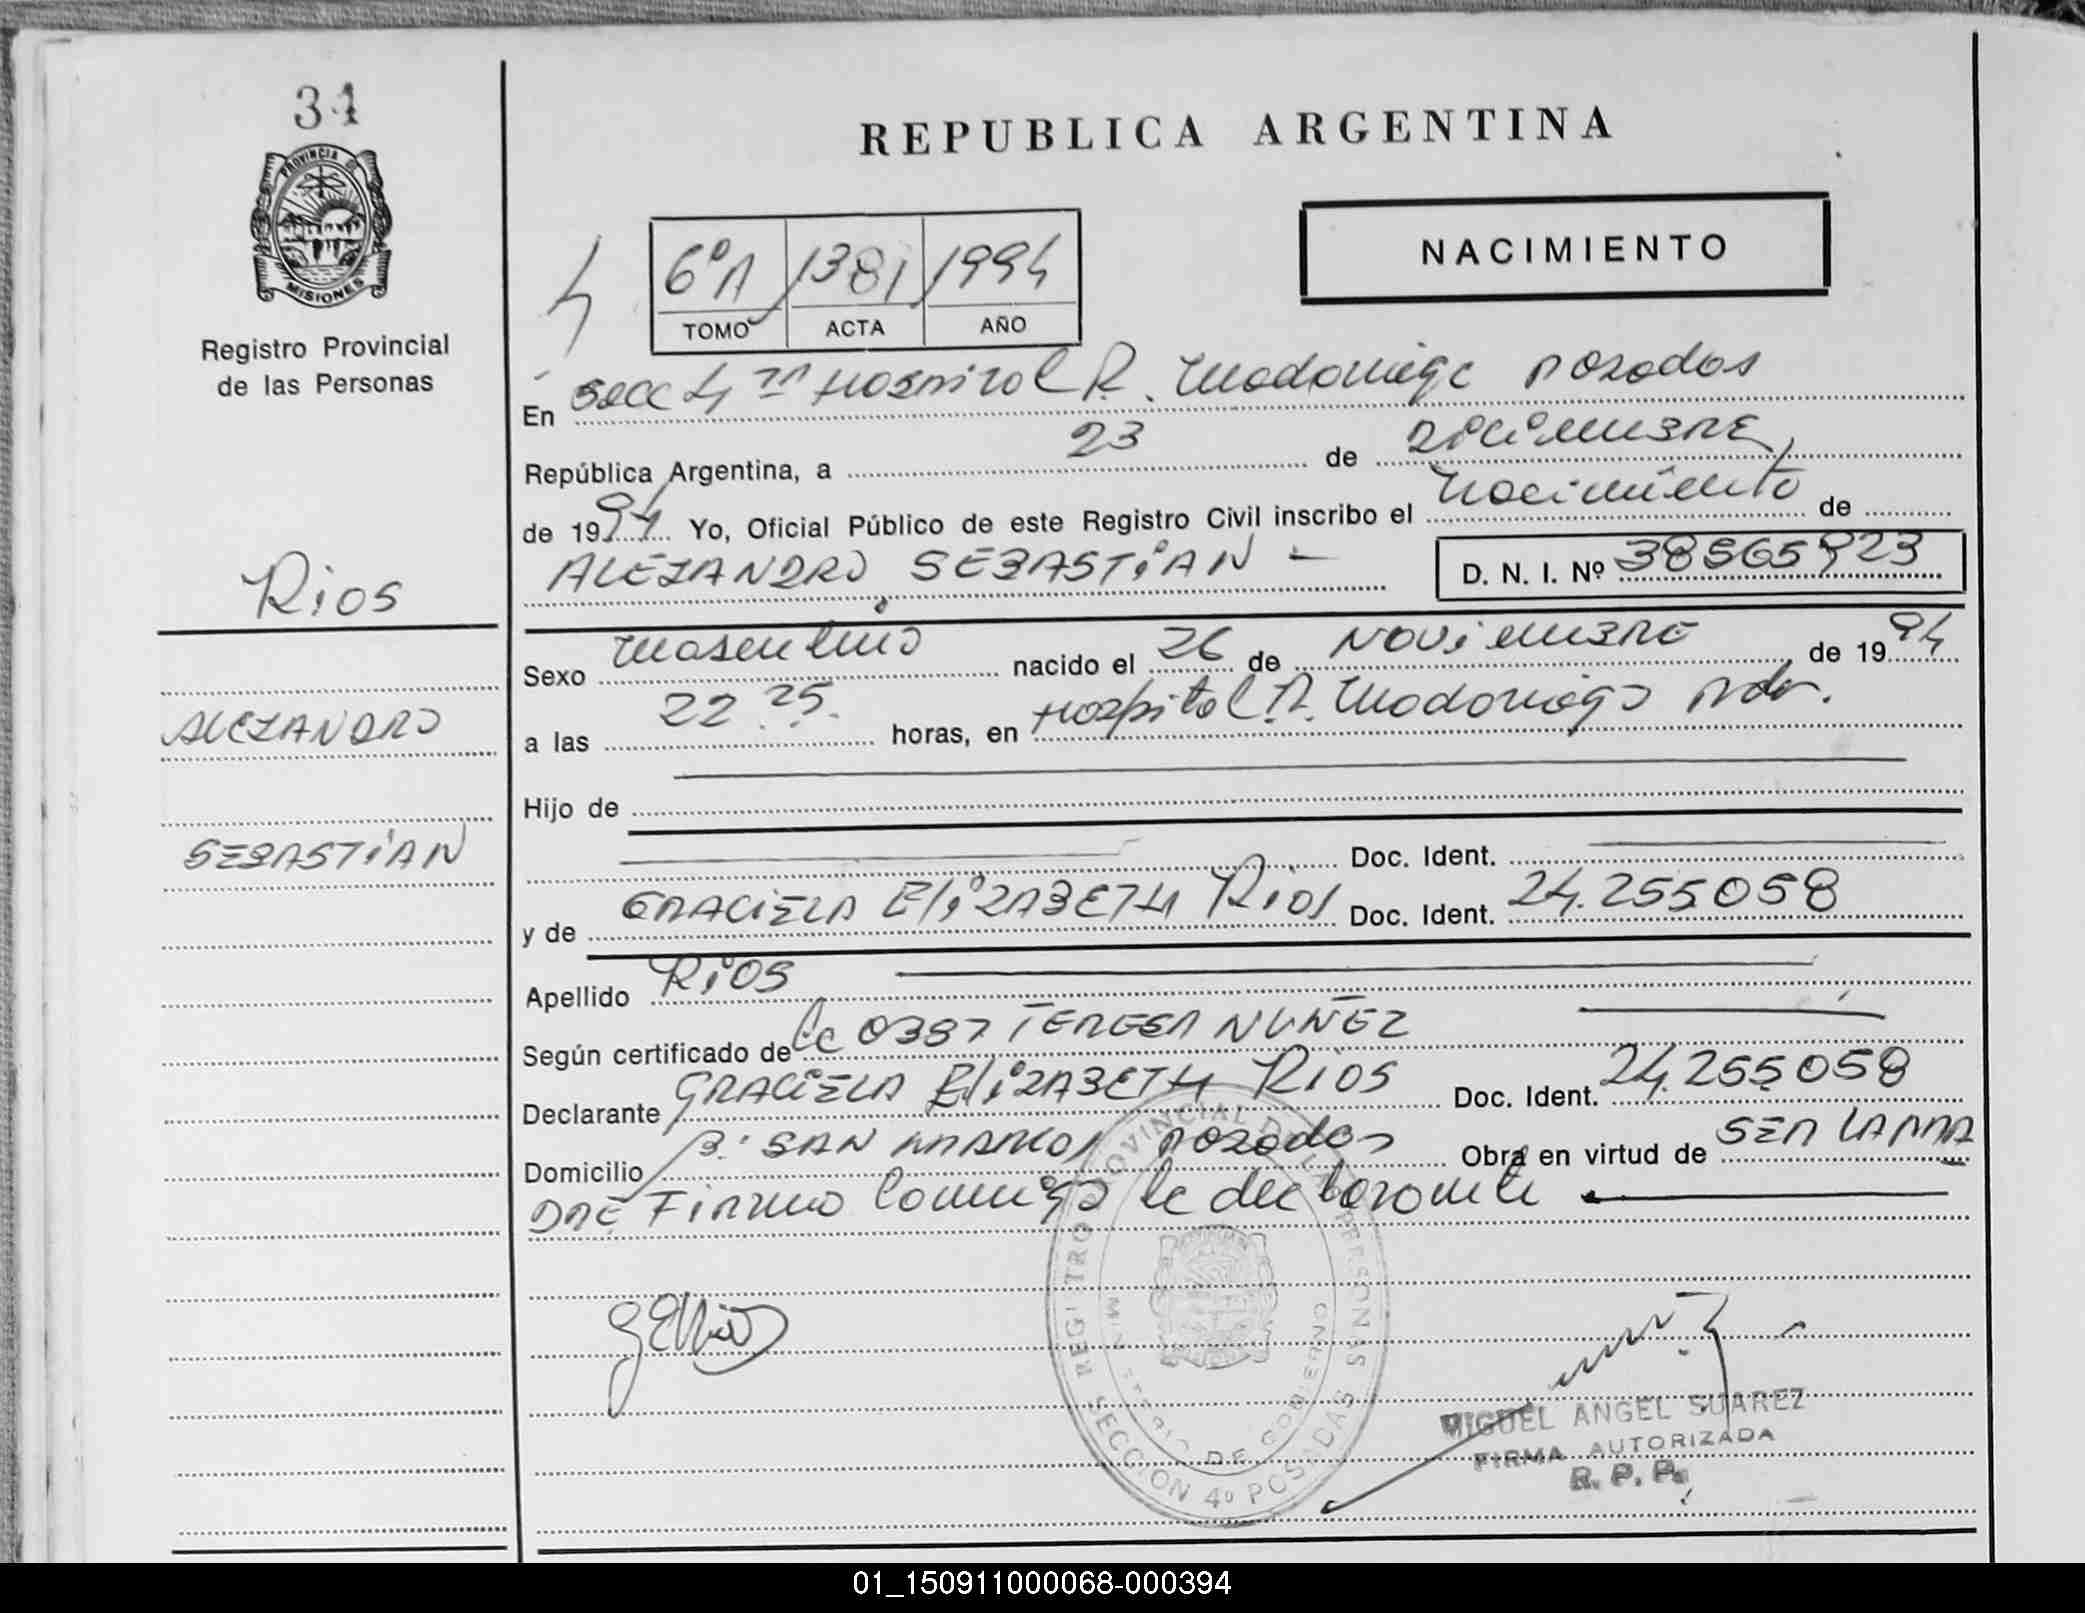 34
PROVINCIA
MISIONES
Registro Provincial
de las Personas
REPUBLICA ARGENTINA
NACIMIENTO
6º A 1381 1994
TOMO ACTA AÑO
En Secc 4 Hospital R. Madariaga Posadas
República Argentina, a 23 de DICIEMBRE
de 1994 Yo, Oficial Público de este Registro Civil inscribo el Nacimiento de
ALEJANDRO SEBASTIAN - D. N. I. Nº 38565923
Rios
ALEJANDRO
SEBASTIAN
Sexo Masculino nacido el 26 de NOVIEMBRE de 1994
a las 22 25. horas, en Hospital R. Madariaga Pdas.
Hijo de
Doc. Ident.
y de GRACIELA ELIZABETH Rios Doc. Ident. 24.255058
Apellido RIOS
Según certificado de Lc 0387 TERESA NUÑEZ
Declarante GRACIELA ELIZABETH RIOS Doc. Ident. 24.255058
Domicilio B. SAN MARCOS Posadas Obra en virtud de SER LA MA
DRE Firma Conmigo la declarante
REGISTRO PROVINCIAL DE LAS PERSONAS
MINISTERIO DE GOBIERNO
SECCION 4º POSADAS
MIGUEL ANGEL SUAREZ
FIRMA AUTORIZADA
R. P. P.
01_150911000068-000394